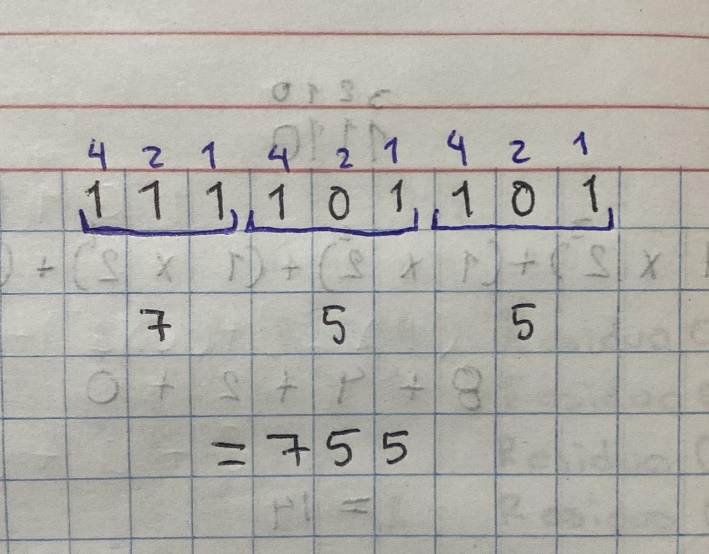 4 2 1 4 2 1 4 2 1
1 1 1 1 0 1 1 0 1
7 5 5
= 7 5 5